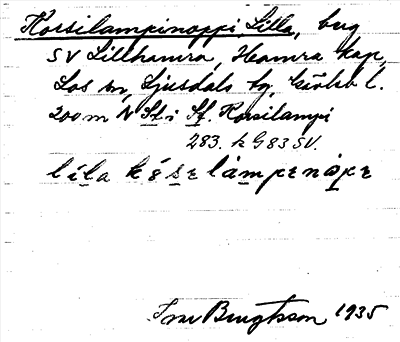 Korsilampinoppi, Lilla, bug
SV Lillhamra, Hamra kap,
Los sn, Ljusdals tg, Gävleb l.
200 m N St. i St. Korsilampi
283. k G 83 SV.
líla kóṣɛlámpɛnòpɛ
Bengtsson 1935